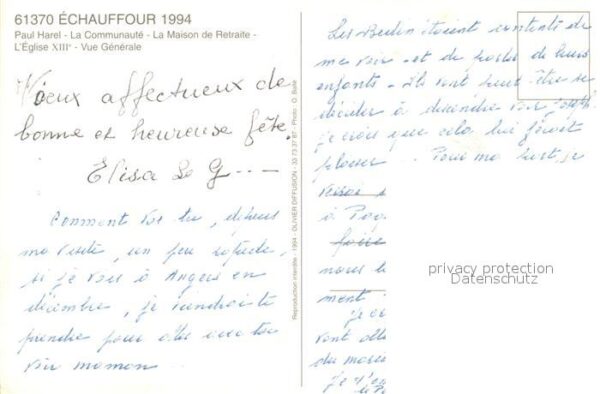 61370 ÉCHAUFFOUR 1994
Paul Harel - La Communauté - La Maison de Retraite -
L'Église XIIIᵉ - Vue Générale
Vœux affectueux de
bonne et heureuse fête.
Elisa Le G...
Comment vas tu, depuis
ma visite, un peu
si je vais à Angers en
décembre, je viendrai te
prendre pour aller avec toi
voir maman
Reproduction interdite - 1994 - OLIVIER DIFFUSION - 33 73 37 87 - Photo : O.
Les étaient contents de
me voir et de parler de leurs
enfants - Ils vont peut être se
décider à descendre voir
je crois que cela lui ferait
plaisir. Pour ma part, je
à
nous
ment
je
vont
du
je
privacy protection
Datenschutz